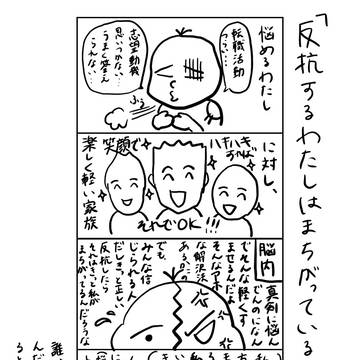 「反抗するわたしはまちがっている
悩めるわたし
転職活動
つらい…
志望動機
思いつかない…
うまく答え
られない…
ふぅ
に対し、
ハキハキ
すれば
笑顔で
それでOK!!!
楽しく軽い
家族
脳内
真剣に悩ん
でんのになん
でそんな軽くす
ませるんだよ
そんなアホ
な解決法
でも、
みんな信
じられる人
だしきっと正しい
反抗したら
それはきっと私が
まちがってるんだろうな
誰
んだ
ると